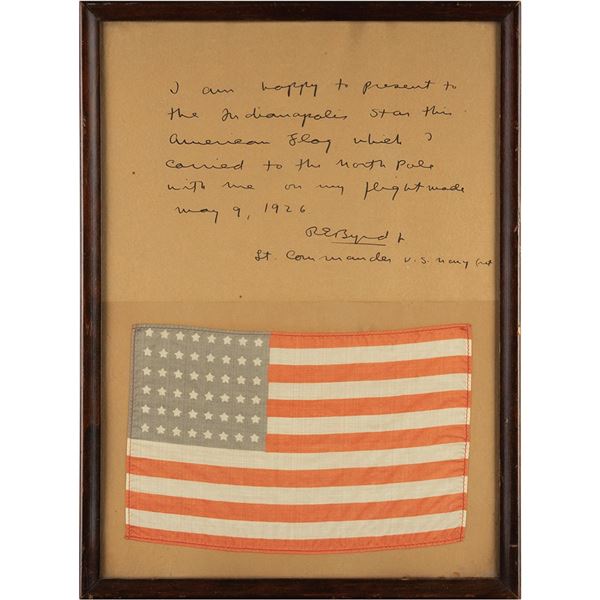 I am happy to present to
the Indianapolis Star this
American Flag which I
carried to the North Pole
with me on my flight made
may 9, 1926
R E Byrd Jr
Lt. Commander U.S. Navy Ret